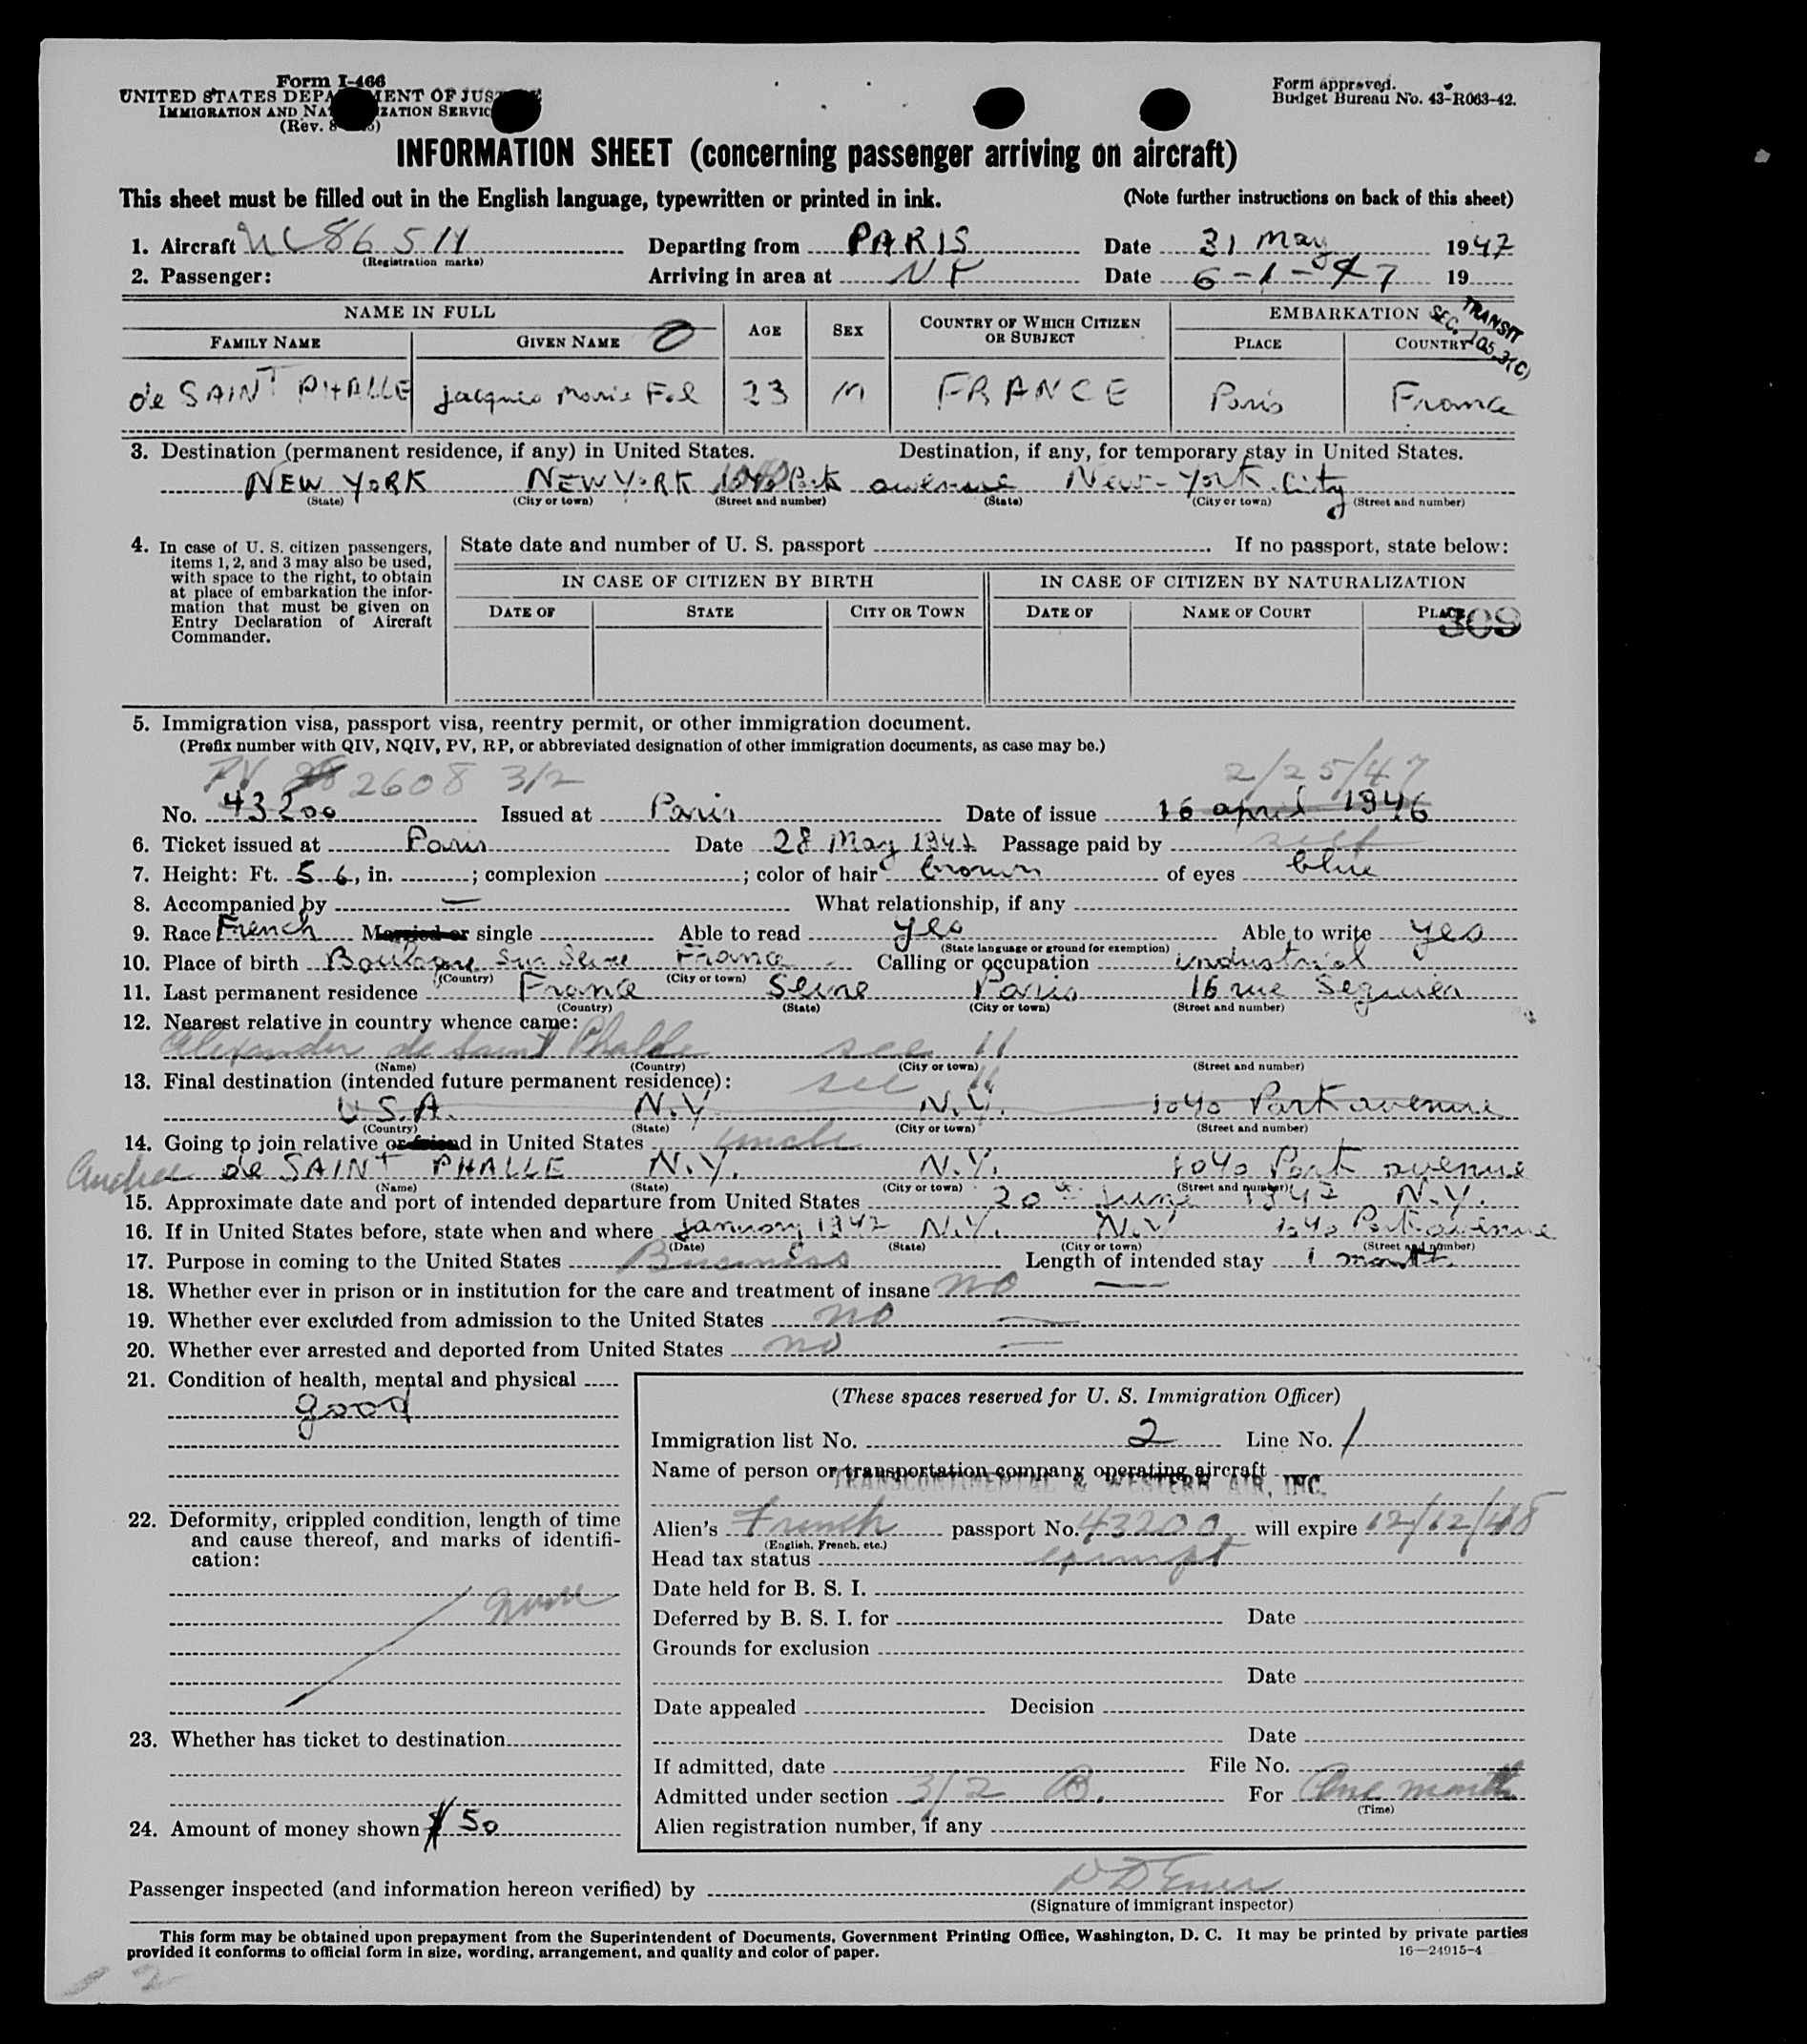 Form I-466
UNITED STATES DEPARTMENT OF JUSTICE
IMMIGRATION AND NATURALIZATION SERVICE
(Rev. 8
Form approved.
Budget Bureau No. 43-R063-42.
INFORMATION SHEET (concerning passenger arriving on aircraft)
This sheet must be filled out in the English language, typewritten or printed in ink. (Note further instructions on back of this sheet)
1. Aircraft Departing from PARIS Date 31 May 1947
(Registration marks)
2. Passenger: Arriving in area at N Y Date 6-1-47 19
NAME IN FULL AGE SEX COUNTRY OF WHICH CITIZEN OR SUBJECT EMBARKATION
TRANSIT
SEC. 105.3(C)
FAMILY NAME GIVEN NAME PLACE COUNTRY
de SAINT PHALLE Jacques Marie 23 M FRANCE Paris France
3. Destination (permanent residence, if any) in United States. Destination, if any, for temporary stay in United States.
NEW YORK NEW YORK 1040 Park avenue New-York City
(State) (City or town) (Street and number) (State) (City or town) (Street and number)
4. In case of U. S. citizen passengers, items 1, 2, and 3 may also be used, with space to the right, to obtain at place of embarkation the information that must be given on Entry Declaration of Aircraft Commander.
State date and number of U. S. passport . If no passport, state below:
IN CASE OF CITIZEN BY BIRTH IN CASE OF CITIZEN BY NATURALIZATION
DATE OF STATE CITY OR TOWN DATE OF NAME OF COURT PLACE
309
5. Immigration visa, passport visa, reentry permit, or other immigration document.
(Prefix number with QIV, NQIV, PV, RP, or abbreviated designation of other immigration documents, as case may be.)
PV 2608 3/2 2/25/47
No. 43200 Issued at Paris Date of issue 16 april 1946
6. Ticket issued at Paris Date 28 May 1947 Passage paid by self
7. Height: Ft. 5 6, in. ; complexion ; color of hair brown of eyes blue
8. Accompanied by — What relationship, if any
9. Race French Married or single Able to read yes Able to write yes
(State language or ground for exemption)
10. Place of birth Boulogne Sur Seine France Calling or occupation industrial
(Country) (City or town)
11. Last permanent residence France Seine Paris 16 rue Seguier
(Country) (State) (City or town) (Street and number)
12. Nearest relative in country whence came:
Alexander de Saint Phalle see 11
(Name) (Country) (City or town) (Street and number)
13. Final destination (intended future permanent residence): see 11
U.S.A. N.Y. N.Y. 1040 Park avenue
(Country) (State) (City or town) (Street and number)
14. Going to join relative or friend in United States uncle
de SAINT PHALLE N.Y. N.Y. 1040 Park avenue
(Name) (State) (City or town) (Street and number)
15. Approximate date and port of intended departure from United States 20th June 1947 N.Y.
16. If in United States before, state when and where January 1947 N.Y. N.Y 1040 Park avenue
(Date) (State) (City or town) (Street and number)
17. Purpose in coming to the United States Business Length of intended stay 1 month
18. Whether ever in prison or in institution for the care and treatment of insane no —
19. Whether ever excluded from admission to the United States no —
20. Whether ever arrested and deported from United States no —
21. Condition of health, mental and physical
good
22. Deformity, crippled condition, length of time and cause thereof, and marks of identification:
none
23. Whether has ticket to destination
24. Amount of money shown $ 50
(These spaces reserved for U. S. Immigration Officer)
Immigration list No. 2 Line No. 1
Name of person or transportation company operating aircraft
TRANSCONTINENTAL & WESTERN AIR, INC.
Alien's French passport No. 43200 will expire 12/12/48
(English, French, etc.)
Head tax status exempt
Date held for B. S. I.
Deferred by B. S. I. for Date
Grounds for exclusion
Date
Date appealed Decision
Date
If admitted, date File No.
Admitted under section 3/2 B. For One month
(Time)
Alien registration number, if any
Passenger inspected (and information hereon verified) by
(Signature of immigrant inspector)
This form may be obtained upon prepayment from the Superintendent of Documents, Government Printing Office, Washington, D. C. It may be printed by private parties
provided it conforms to official form in size, wording, arrangement, and quality and color of paper. 16—24915-4